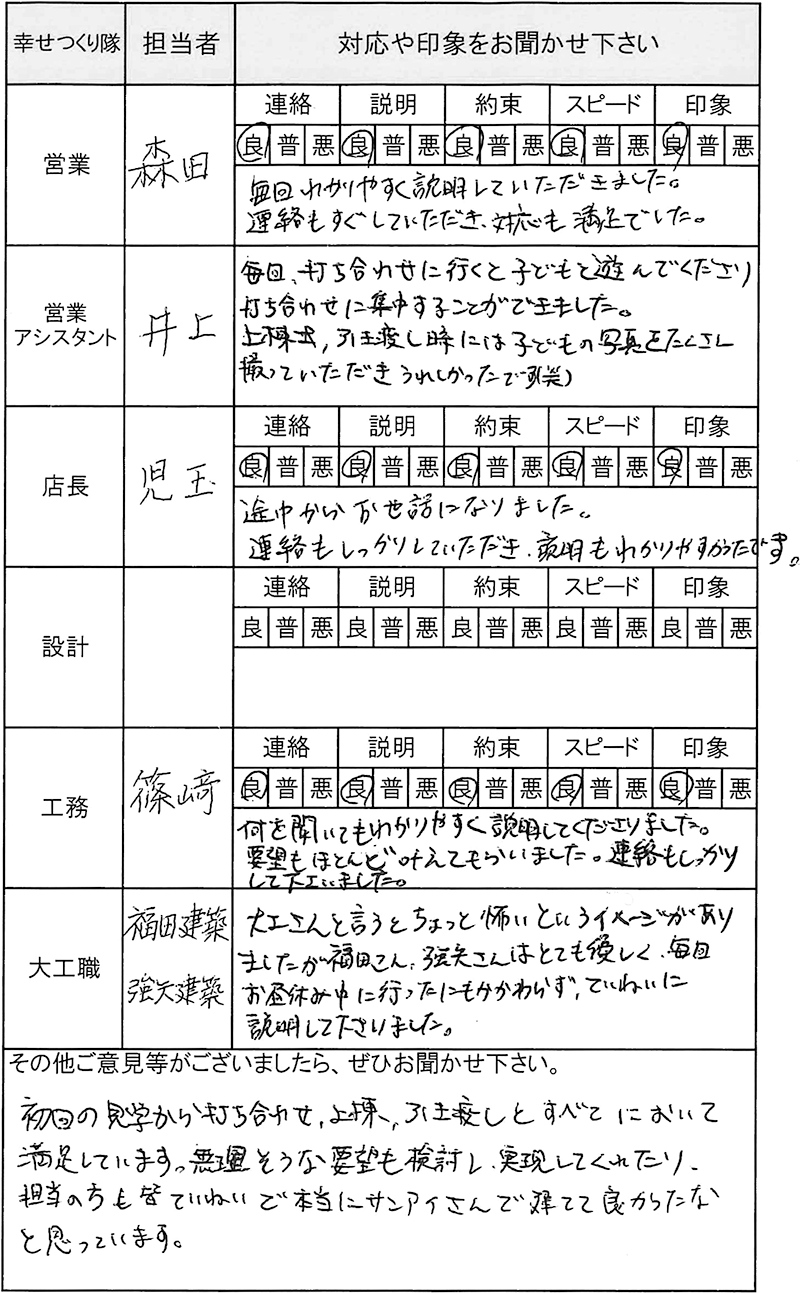 幸せつくり隊 担当者 対応や印象をお聞かせ下さい
営業 森田
連絡 説明 約束 スピード 印象
良 普 悪 良 普 悪 良 普 悪 良 普 悪 良 普 悪
毎回わかりやすく説明していただきました。
連絡もすぐしていただき、対応も満足でした。
営業
アシスタント 井上
毎回、打ち合わせに行くと子どもと遊んでくださり
打ち合わせに集中することができました。
上棟式, 引き渡し時には子どもの写真をたくさん
撮っていただきうれしかったです(笑)
店長 児玉
連絡 説明 約束 スピード 印象
良 普 悪 良 普 悪 良 普 悪 良 普 悪 良 普 悪
途中からお世話になりました。
連絡もしっかりしていただき、説明もわかりやすかったです。
設計
連絡 説明 約束 スピード 印象
良 普 悪 良 普 悪 良 普 悪 良 普 悪 良 普 悪
工務 篠﨑
連絡 説明 約束 スピード 印象
良 普 悪 良 普 悪 良 普 悪 良 普 悪 良 普 悪
何を聞いてもわかりやすく説明してくださりました。
要望もほとんど叶えてもらいました。連絡もしっかり
して下さいました。
大工職 福田建築
強矢建築
大工さんと言うとちょっと怖いというイメージがあり
ましたが福田さん、強矢さんはとても優しく、毎回
お昼休み中に行ったにもかかわらず, ていねいに
説明して下さりました。
その他ご意見等がございましたら、ぜひお聞かせ下さい。
初回の見学から打ち合わせ, 上棟, 引き渡しとすべてにおいて
満足しています。無理そうな要望も検討し、実現してくれたり、
担当の方も皆ていねいで本当にサンアイさんで建てて良かったな
と思っています。